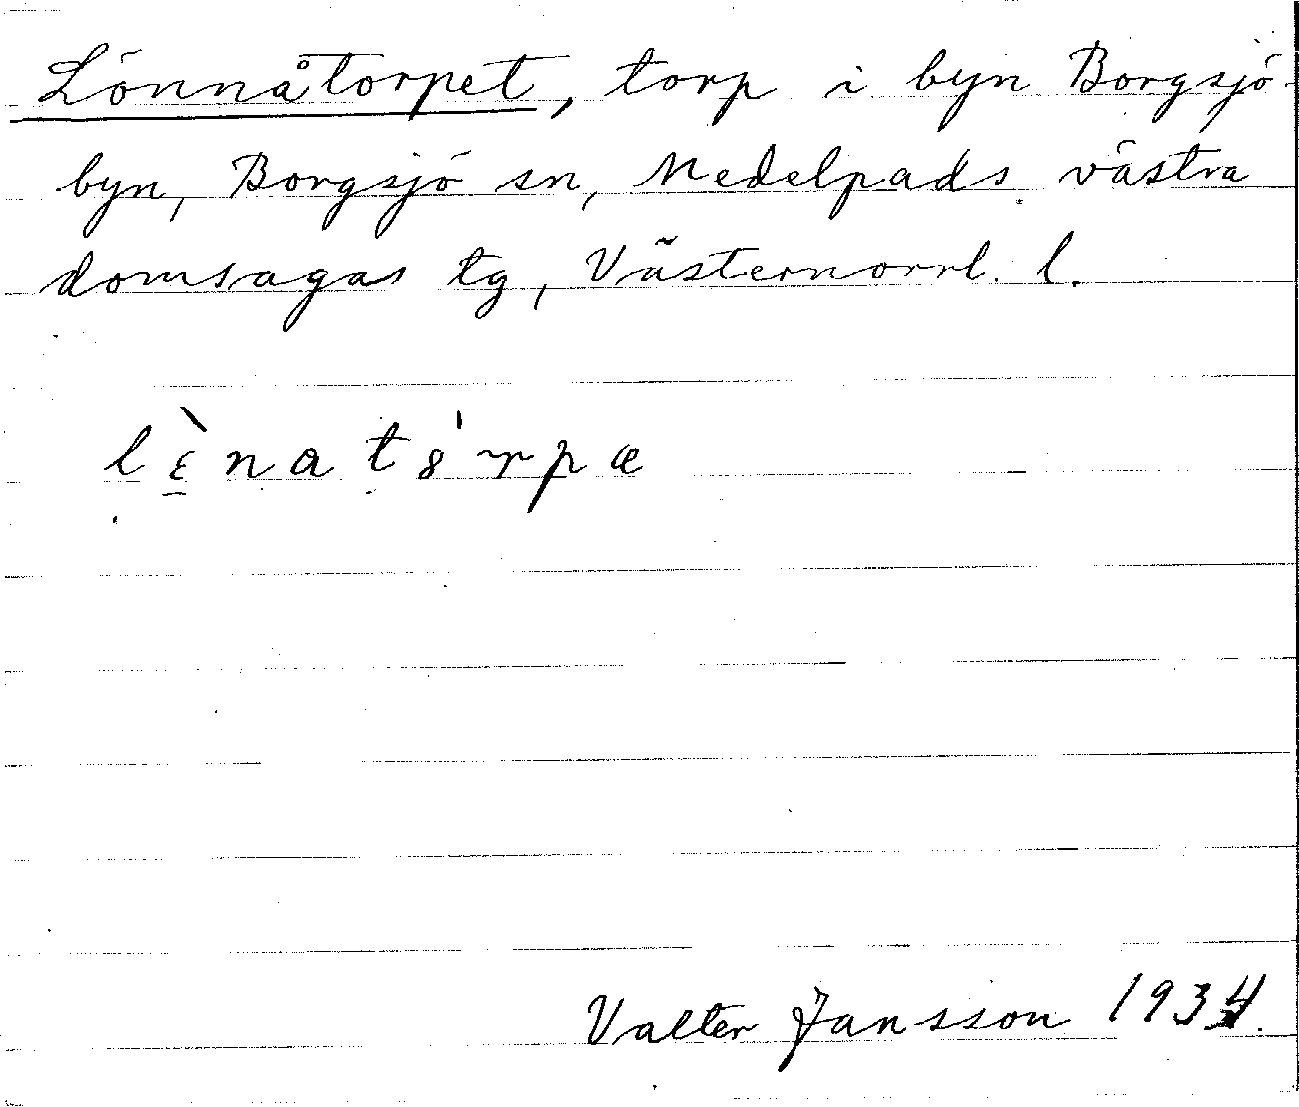 Lönnåtorpet, torp i byn Borgsjö-
byn, Borgsjö sn, Medelpads västra
domsagas tg, Västernorrl. l.
lɛ̀natȣ́rpæ
Valter Jansson 1934.